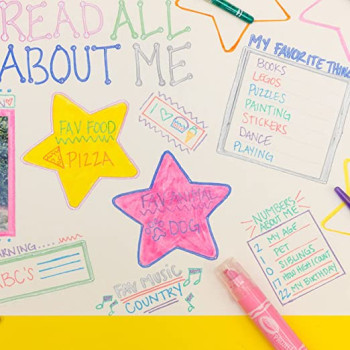 READ ALL
ABOUT ME
MY FAVORITE THING
BOOKS
LEGOS
PUZZLES
PAINTING
STICKERS
DANCE
PLAYING
I
FAV FOOD
PIZZA
FAV
DOG
NUMBERS
ABOUT ME
2 MY AGE
1 PET
0 SIBLINGS
17 HOW HIGH I COUNT
22 MY BIRTHDAY
ARNING....
ABC'S
FAV MUSIC
COUNTRY